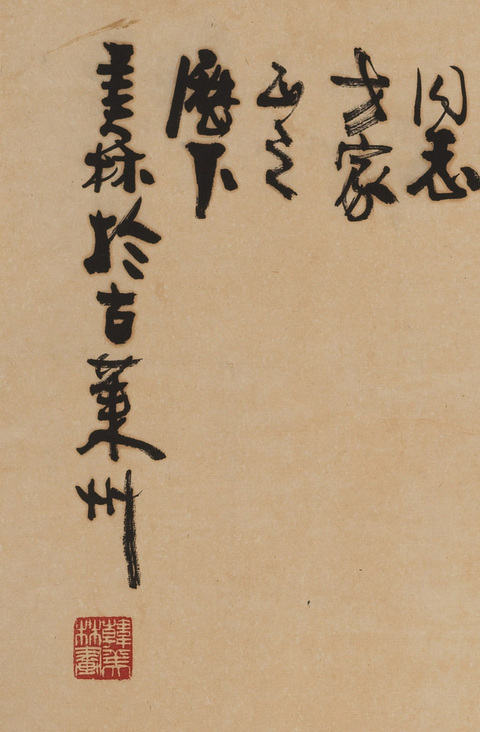 同志
方家
正之
歷下
美林於古萊州
韓美林畫